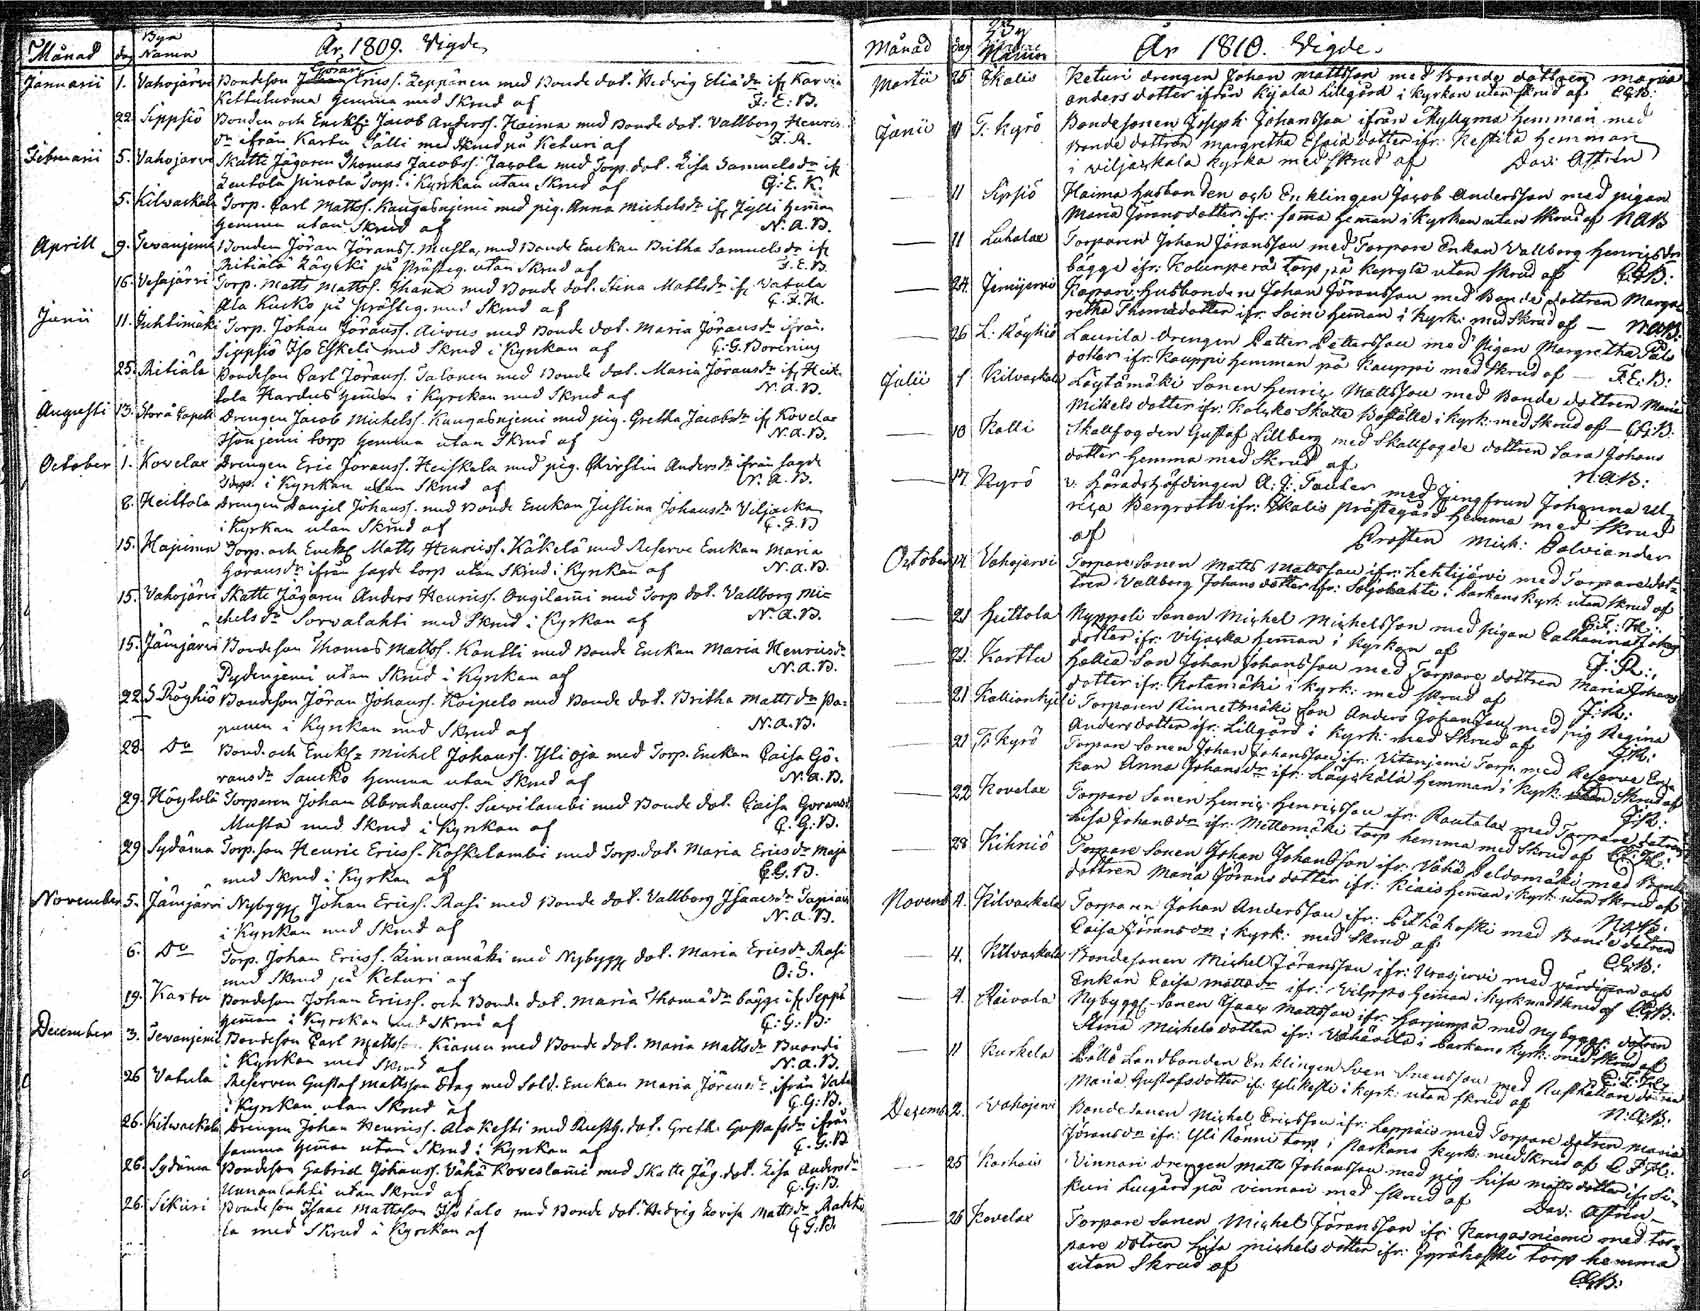 Månad dag Byn Namn År 1809. Vigde
Januarii 1. Vahojärvi Bondeson Jöran Ericss. Leppänen med Bonde dot. Hedvig Eliædr ifr Karvia
Kettuluoma hemma med Skrud af F: E: B.
22. Sippsiö Bonden och Enckl: Jacob Anderss. Haima med Bonde dot. Vallborg Henrics
dr ifrån Kartu Källi med Skrud på Keturi af F. R.
Februarii 5. Vahojarvi Skatte Jägaren Thomas Jacobss: Jacola med Torp. dot. Lisa Samuels dr ifr
Torp. i Kyrkan utan Skrud af G: E. K.
5. Kilvackala Torp. Carl Mattss. Kangasnjemi med pig. Anna Michels dr ifr Jylli hemn
hemma utan Skrud af N. A. B.
Aprill 9. Jevanjemi Bonden Jöran Jöranss. Musta, med Bonde Enckan Britha Samuels dr ifr
Ritiälä på Prästeg. utan Skrud af F. E. B.
16. Vehajärvi Torp. Matts Mattss. med Bonde dot. Stina Matts dr ifr Vatula
Ala Kusko på prästeg. med Skrud af G. F. H.
Junii 11. Juhtimäki Torp. Johan Jöranss. Airous med Bonde dot. Maria Jörans dr ifrån
Sippsiö Iso Eskeli med Skrud i Kyrkan af C: G. Borenius
25. Ritiälä Bondeson Carl Jöranss. Salonen med Bonde dot. Maria Jörans dr ifr Heit-
tola Hardus hemn i Kyrckan med Skrud af N. A. B.
Augusti 13. Storå Capell Drengen Jacob Michelss. Kangasnjemi med pig. Gretha Jacobs dr ifr Kovelax
torp hemma utan Skrud af N. A. B.
October 1. Kovelax Drengen Eric Jöranss. Heiskala med pig. Christin Anders dr ifrån sagde
Torp. i Kyrckan utan Skrud af N. A. B.
8. Heittola Drengen Danjel Johanss. med Bonde Enckan Justina Johans dr Viljacka
i Kyrkan utan Skrud af C. G. B
15. Hapima Torp. och Enckl Matts Henricss. Käkelä med Reserve Enckan Maria
Görans dr ifrån sagde torp utan Skrud i Kyrkan af N. A. B.
15. Vahojärvi Skatte Jägaren Anders Henricss. med Torp dot. Vallborg Mi-
chels dr Sorvalahti med Skrud i Kyrkan af N. A. B.
15. Jämjärvi Bondeson Thomas Mattss. Kontti med Bonde Enckan Maria Henrics dr
utan Skrud i Kyrkan af N. A. B.
22. S Röyhiö Bondeson Jöran Johanss. Koipelo med Bonde dot. Britha Matts dr Pa-
punen i Kyrkan med Skrud af N. A. B.
28. Do Bond. och Enckl Michel Johanss. Yli oja med Torp. Enckan Caisa Gö-
rans dr Saucko hemma utan Skrud af N. A. B.
29. Höytölä Torparen Johan Abrahamss. Suvilambi med Bonde dot. Caisa Gorans dr
Musta med Skrud i Kyrkan af C. G. B.
29. Sydänm Torp. son Henric Ericss. Koskelambi med Torp. dot. Maria Erics dr Maja
med Skrud i Kyrkan af C. G. B.
November 5. Jämjärvi Nybygg Johan Ericss. Rasi med Bonde dot. Vallborg Isaacs dr Tapiais
i Kyrkan med Skrud af N. A. B.
6. Do Torp. Johan Ericss. Kinnamäki med Nybygg dot. Maria Erics dr Rasi
med Skrud på Keturi af O: S.
19. Kartu Bondeson Johan Ericss. och Bonde dot. Maria Thomæ dr bägge ifr Seppä
hemn i Kyrckan med Skrud af C: G: B:
December 3. Jevanjemi Bondeson Carl Mattss. Kianen med Bonde dot. Maria Matts dr
i Kyrkan med Skrud af N. A. B.
26 Vatula Reserven Gustaf Mattsson Stag med Sold. Enckan Maria Jörans dr ifrån Vatu
i Kyrckan utan Skrud af C. G: B.
26. Kilvackala Drengen Johan Henricss. Ala Kesti med Rustg. dot. Greth. Gustafs dr ifrån
samma hemn utan Skrud i Kyrkan af C: G: B
26. Sydänm Bondeson Gabriel Johanss. Vähä Koveslami med Skatte Jäg. dot. Lisa Anders dr
Unnanlahti utan Skrud af C. G. B.
26. Sikuri Bondeson Isaac Mattsson Isotalo med Bonde dot. Hedvig Lovisa Matts dr Mahko
la med Skrud i Kyrckan af C G: B.
Månad dag By Namn År 1810. Vigde.
Martii 25 Ikalis Keturi drengen Johan Mattsson med Bonde dottren Maria
Anders dotter ifrån Kyala Lillgård i kyrkan utan Skrud af CGB:
Junii 11 T: Kyrö Bondesonen Joseph Johansson ifrån Myllymä hemman med
Bonde dottren Margretha Esaiæ dotter ifr: Kestilä hemman
i viljackala kyrka med Skrud af Dav: Astrén
11 Sipsiö Haima husbonden och Enklingen Jacob Andersson med pigan
Maria Jörans dotter ifr: samma hemn i kyrkan utan Skrud af NAB
11 Luhalax Torparen Johan Jöransson med Torpare Enkan Vallborg Henrigs dr
bägge ifr: Kolunperä torp på Kepsyla utan Skrud af CGB:
24 Jemijervi husbonden Johan Jöransson med Bonde dottren Marga-
retha Thomædotter ifr: Soini hemn i kyrk: med Skrud af NAB:
26 L: Röyhiö Laurila drengen Petter Pettersson med Pigan Margretha Påls
dotter ifr: Kauppi hemman på Kauppi med Skrud af F: E: B:
Julii 1 Kilvackala Löytämäki Sonen Henric Mattsson med Bonde dottren Maria
Mikels dotter ifr: Kolcko Skatte Boställe i kyrk: med Skrud af CGB:
10 Kalli Skallfogden Gustaf Lillberg med Skallfogde dottren Sara Johans
dotter hemma med Skrud af NAB:
17 Kyrö v: Häradshöfdingen A: J: Tauler med Jungfrun Johanna Ul-
rica Bergroth ifr: Ikalis prästegård hemma med Skrud
af Prosten Mich: Polviander
October 14 Vahojervi Torpare Sonen Matts Mattsson ifr: Lehtijärvi med Torpare dot-
tren Vallborg Johans dotter ifr: i Parkano kyrk: utan Skrud af
G: F: H:
21 Heittola Nyppeli Sonen Michel Michelsson med pigan Catharina Johans
dotter ifr: Viljacka hemn i kyrkan af J: R:
21 Karttu Hallia Son Johan Johansson med Torpare dottren Maria Johans
dotter ifr: Kotamäki i kyrk: med Skrud af J: R:
21 Kallionkjeli Torparen Kinnetsmäki Son Anders Johansson med pig Regina
Anders dotter ifr: Lillgård i kyrk: med Skrud af J: R:
21 T: Kyrö Torpare Sonen Johan Johansson ifr: Vitanjemi Torp med Reserve En-
kan Anna Johans dr ifr: Löyckälä hemman i kyrk: utan Skrud af
J: R:
22 Kovelax Torpare Sonen Henric Henricsson ifr: Rautalax med Torpare dottren
Lisa Johans dr ifr: Mettomäki torp hemma med Skrud af
28 Kihniö Torpare Sonen Johan Johansson ifr: Vähä Peldomäki med Bonde
dottren Maria Jörans dotter ifr: hemn i kyrk: utan Skrud af
NAB:
Novemb 4. Kilvackala Torparen Johan Andersson ifr: Pitkäkoski med Bonde dottren
Caisa Jörans dr i kyrk: med Skrud af CGB:
4. Kilvackala Bondesonen Michel Jöransson ifr: Urasjervi med värdinnan och
Enkan Caisa Matts dr ifr: Vilppo hemn i kyrk med Skrud af CGB:
4. Räivälä Nybygg. Sonen Isaac Mattsson ifr: med nybygg. dotren
Stina Michels dotter ifr: i Parkano kyrk: med Skrud af
G: F: H:
11 Kurkela Landbonden Enklingen Sven Svensson med Rusthållar dottren
Maria Gustafs dotter ifr: Yli Kesti i kyrk: utan Skrud af NAB:
Decemb. 2. Vahojervi Bonde Sonen Michel Ericsson ifr: Leppäis med Torpare dottren Maria
Jörans dr ifr: Yli Rönni torp i Parkano kyrk: med Skrud af G F H:
25 Karhois Vinnari drengen Matts Johansson med pig Lisa Matts dotter ifr: Si-
kuri på Vinnari med Skrud af Dav: Astrén
26 Kovelax Torpare Sonen Michel Jöransson ifr: Kangasniemi med tor-
pare dotren Lisa Michels dotter ifr: torp hemma
utan Skrud af CGB: